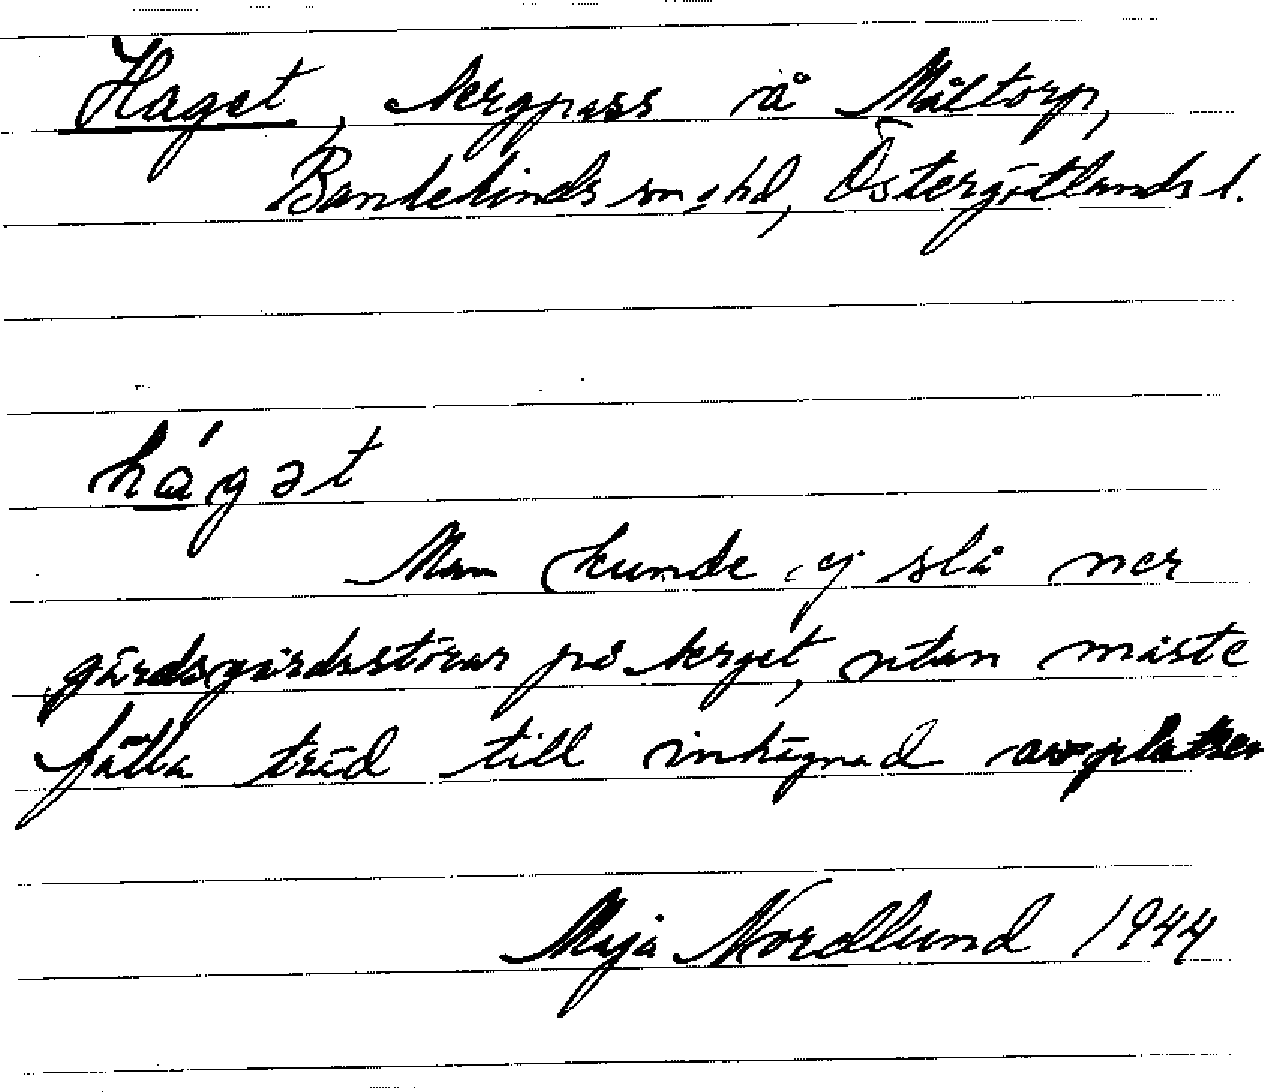 Haget, bergpass å Måltorp,
Bankekinds sn o hd, Östergötlands l.
há̱gət
Man kunde ej slå ner
gärdsgårdsstörar på berget, utan måste
fälla träd till inhägnad av platsen
Maja Nordlund 1944